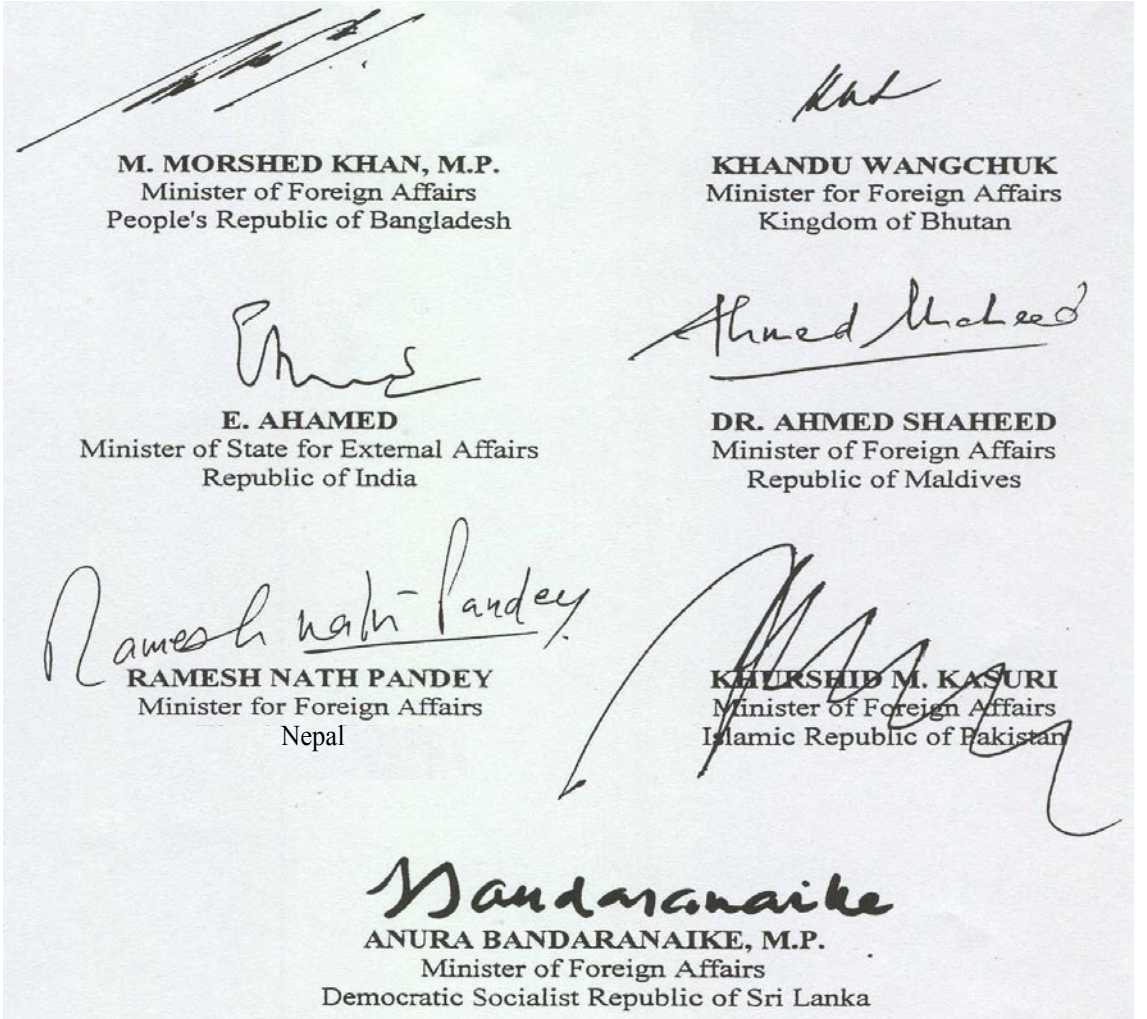 M. MORSHED KHAN, M.P.
Minister of Foreign Affairs
People's Republic of Bangladesh
KHANDU WANGCHUK
Minister for Foreign Affairs
Kingdom of Bhutan
Ahmed Shaheed
E. AHAMED
Minister of State for External Affairs
Republic of India
DR. AHMED SHAHEED
Minister of Foreign Affairs
Republic of Maldives
Ramesh nath Pandey
RAMESH NATH PANDEY
Minister for Foreign Affairs
Nepal
KHURSHID M. KASURI
Minister of Foreign Affairs
Islamic Republic of Pakistan
Bandaranaike
ANURA BANDARANAIKE, M.P.
Minister of Foreign Affairs
Democratic Socialist Republic of Sri Lanka